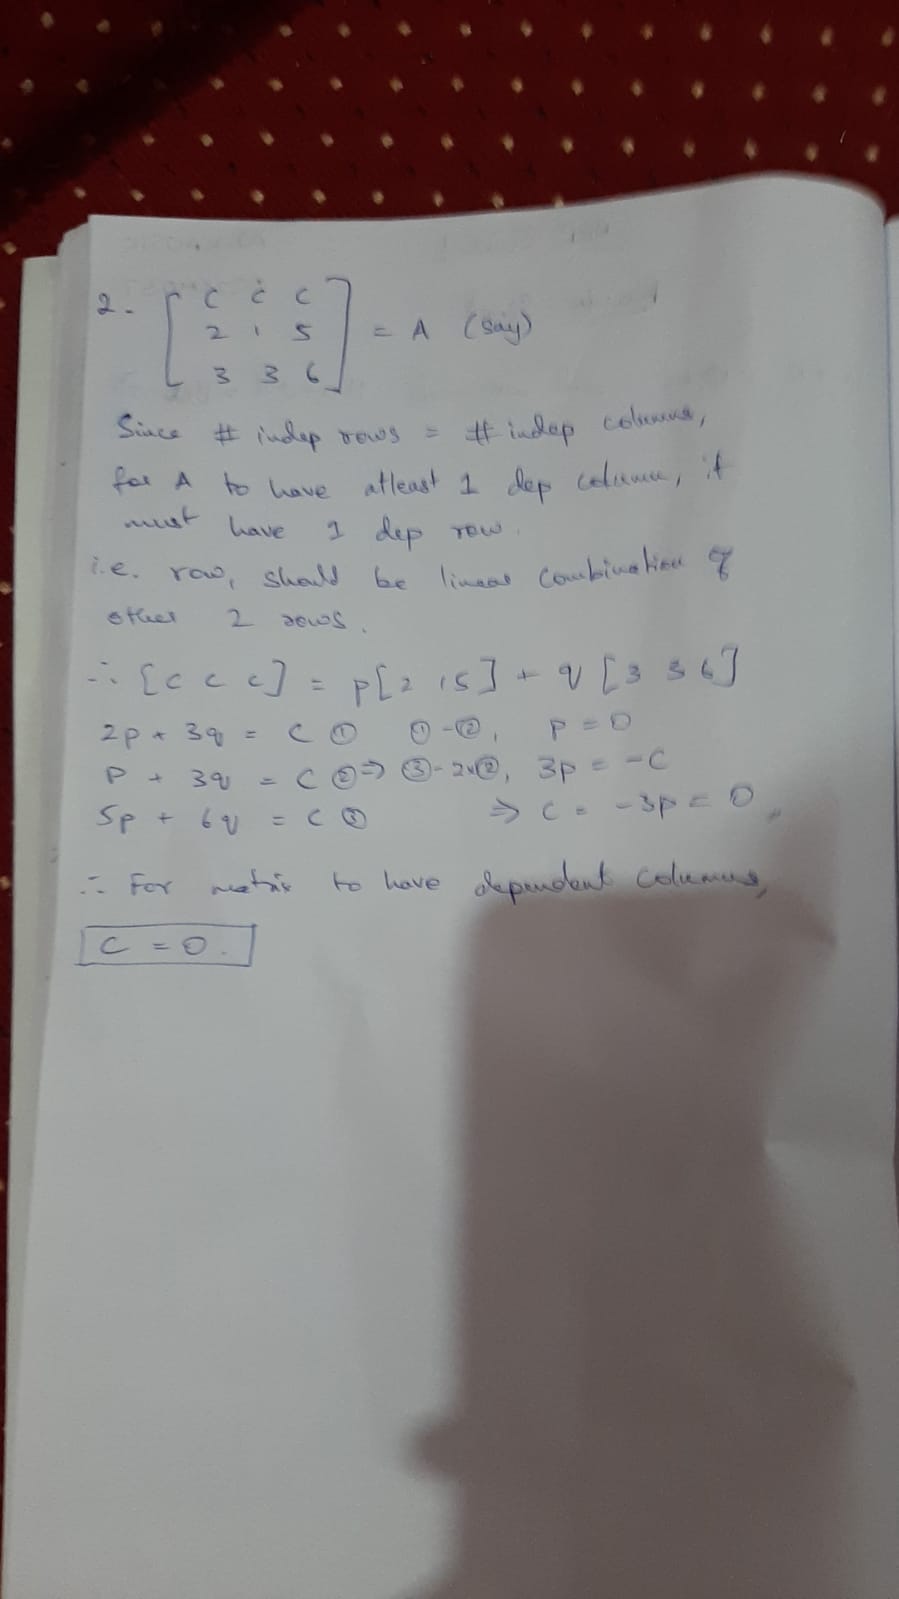 2. [ c c c
2 1 5
3 3 6 ] = A (say)
Since # indep rows = # indep columns,
for A to have atleast 1 dep column, it
must have 1 dep row.
i.e. row, should be linear combination of
other 2 rows.
∴ [c c c] = p[2 1 5] + q [3 3 6]
2p + 3q = c ① ① - ②, p = 0
p + 3q = c ② ⇒ ③ - 2x②, 3p = -c
5p + 6q = c ③ ⇒ c = -3p = 0
∴ For matrix to have dependent columns,
c = 0.